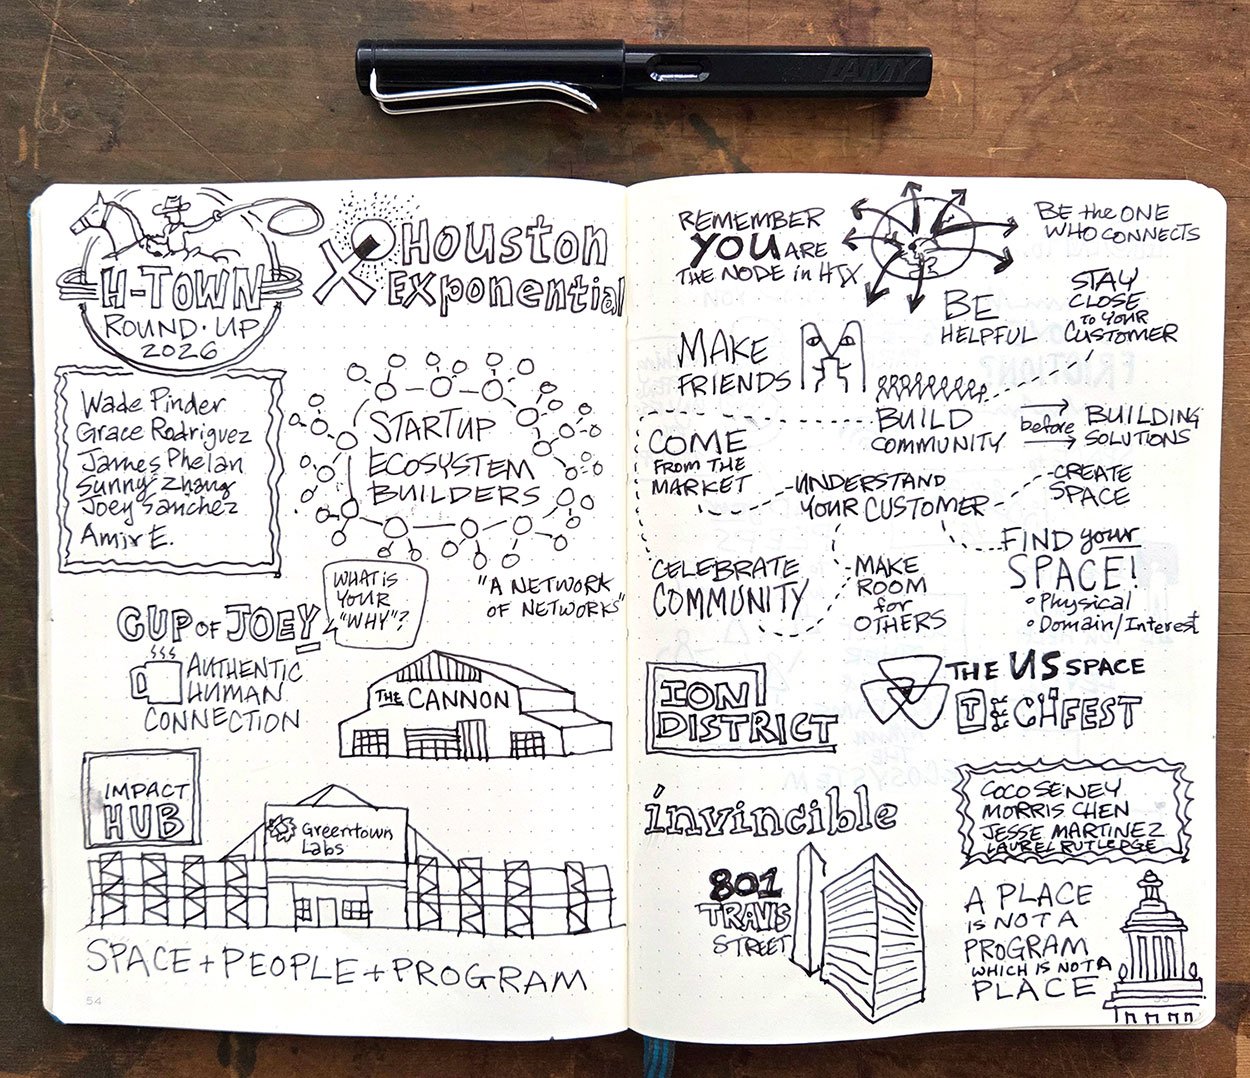 LAMY
H-TOWN
ROUND-UP
2026
Houston
Exponential
Wade Pinder
Grace Rodriguez
James Phelan
Sunny Zhang
Joey Sanchez
Amir E.
STARTUP
ECOSYSTEM
BUILDERS
"A NETWORK
OF NETWORKS"
WHAT IS
YOUR
"WHY"?
CUP OF JOEY
AUTHENTIC
HUMAN
CONNECTION
THE CANNON
IMPACT
HUB
Greentown
Labs
SPACE + PEOPLE + PROGRAM
54
REMEMBER
YOU ARE
THE NODE in HTX
BE the ONE
WHO CONNECTS
BE
HELPFUL
STAY
CLOSE
to YOUR
CUSTOMER
MAKE
FRIENDS
BUILD
COMMUNITY
before
BUILDING
SOLUTIONS
COME
FROM THE
MARKET
UNDERSTAND
YOUR CUSTOMER
CREATE
SPACE
FIND your
SPACE!
• Physical
• Domain/Interest
CELEBRATE
COMMUNITY
MAKE
ROOM
for
OTHERS
ION
DISTRICT
THE US SPACE
TECHFEST
invincible
COCO SENEY
MORRIS CHEN
JESSE MARTINEZ
LAUREL RUTLEDGE
801
TRAVIS
STREET
A PLACE
IS NOT A
PROGRAM
WHICH IS NOT A
PLACE